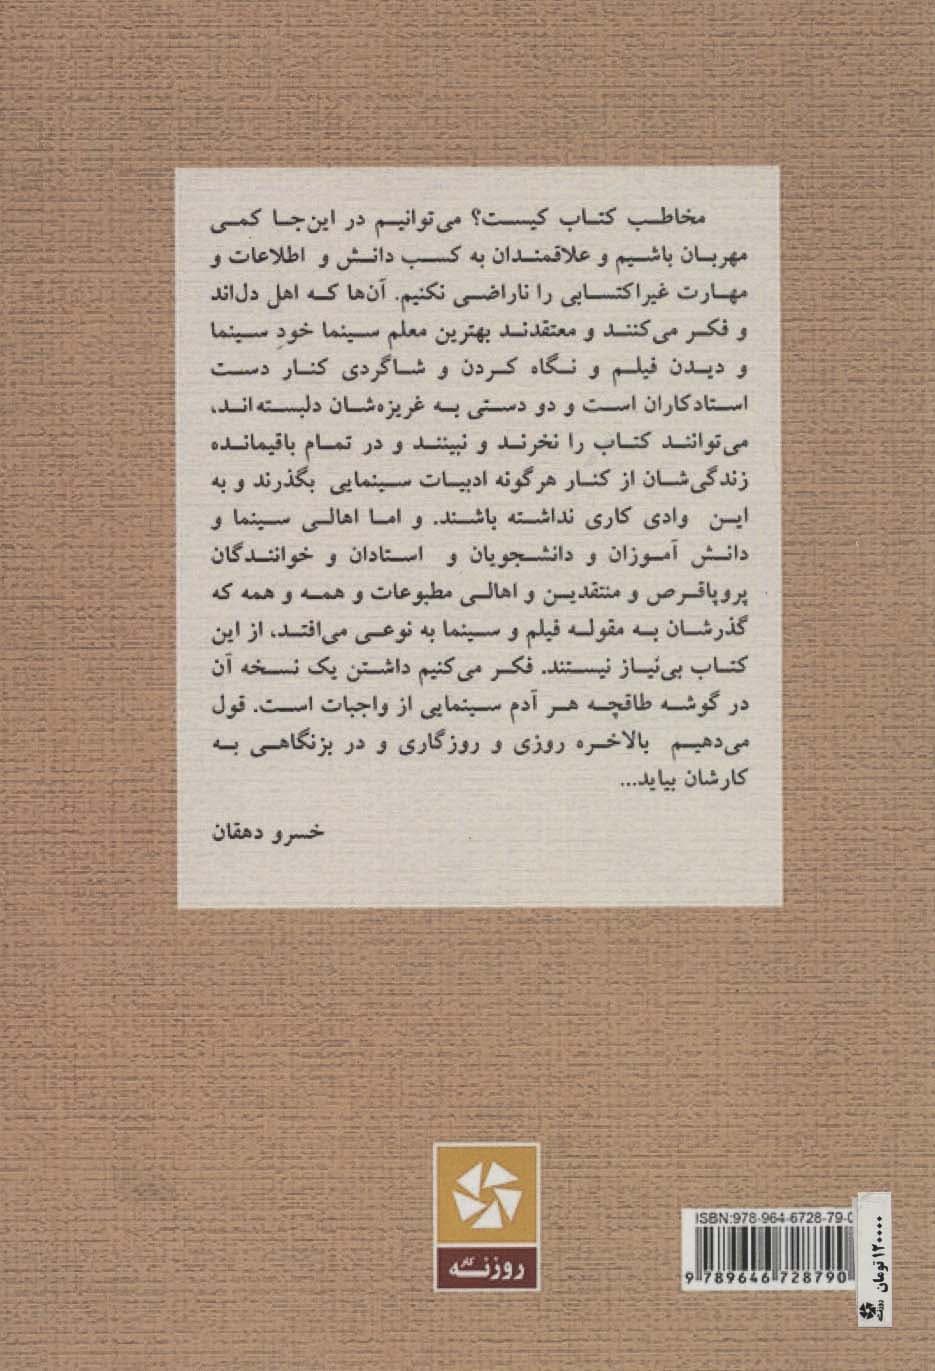 مخاطب کتاب کیست؟ می‌توانیم در این‌جا کمی
مهربان باشیم و علاقمندان به کسب دانش و اطلاعات و
مهارت غیراکتسابی را ناراضی نکنیم. آن‌ها که اهل دل‌اند
و فکر می‌کنند و معتقدند بهترین معلم سینما خودِ سینما
و دیدن فیلم و نگاه کردن و شاگردی کنار دست
استادکاران است و دو دستی به غریزه‌شان دلبسته‌اند،
می‌توانند کتاب را نخرند و نبینند و در تمام باقیمانده
زندگی‌شان از کنار هرگونه ادبیات سینمایی بگذرند و به
این وادی کاری نداشته باشند. و اما اهالی سینما و
دانش آموزان و دانشجویان و استادان و خوانندگان
پروپاقرص و منتقدین و اهالی مطبوعات و همه و همه که
گذرشان به مقوله فیلم و سینما به نوعی می‌افتد، از این
کتاب بی‌نیاز نیستند. فکر می‌کنیم داشتن یک نسخه آن
در گوشه طاقچه هر آدم سینمایی از واجبات است. قول
می‌دهیم بالاخره روزی و روزگاری و در بزنگاهی به
کارشان بیاید...
خسرو دهقان
روزنه
کار
ISBN:978-964-6728-79-0
9 789646 728790
۱۲۰۰۰۰ تومان
روزنه